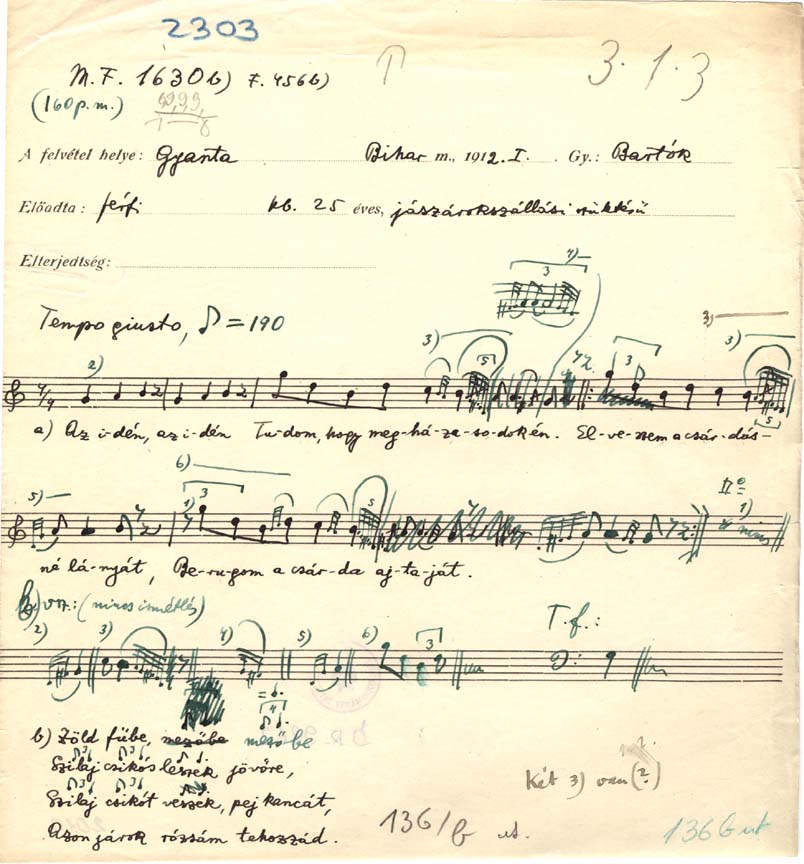 2303
M.F. 1630b) F. 456b)
3.1.3
(160 p.m.)
A felvétel helye: Gyanta Bihar m., 1912.I. Gy.: Bartók
Előadta: férfi kb. 25 éves, jászárokszállási születésű
Elterjedtség:
4)
3
Tempo giusto, ♪ = 190
2) 3) 5 3 3) 3)
7/4
5
a) Az i-dén, az i-dén Tu-dom, hogy meg-há-za-so-dok én. El-ve-szem a csár-dás-
6)
5) 1) 3 5 II 1)
nincs
né lá-nyát, Be-ru-gom a csár-da aj-ta-ját.
b) vsz.: (nincs ismétlés)
2) 3) 4) 5) 6) 3 T.f.:
b) Zöld fűbe, mezőbe mezőbe
Szilaj csikós leszek jövőre,
Szilaj csikót veszek, pej kancát,
Azon járok rózsám tehozzád.
Két 3) van (?)
136/b ut.
136 b ut